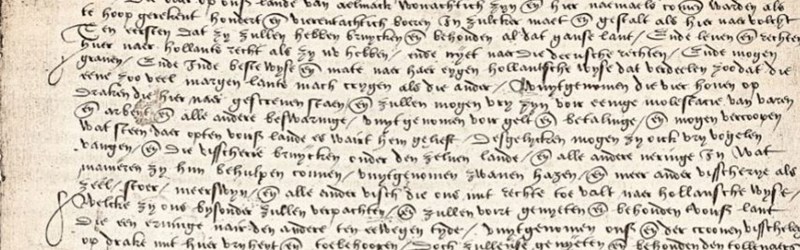 Die voor op onse lande van aelmack wonachtich zyn en hier naemaels comen warden als
te hoop gerekent hondert en vierentachtich boeren In zulcker maet en gestalt als hier naer volcht
Ten eersten dat zy zullen hebben bruycken en behonden al dat ganse lant / Ende leven en rechten
hier naer hollants recht als zy nv hebben / ende nyet naer die deensche rechten / Ende mogen
graven / Ende Inde beste wyse en mate naer haer eygen hollantsche wyse dat verdeelen zoo dat die
eene zoo veel margen lants mach crygen als die ander / Wuytgenomen die vier hoven op
draken die hier naer gescreven staen en zullen mogen vry zyn voir eenige molestacie van varen
en arbeit en alle andere beswaringe / vuytgenomen voir gelt en betalinge / en mogen vercoopen
wat steen daer opten vonß lande es wairt hem gelieft Desgelycken mogen zy oick vry vogelen
vangen / en die visscherie bruycken onder den zelven lande / en alle andere neringe In wat
manieren zy hun behulpen connen / vuytgenomen zwanen hazen / en meer ander visscherye als
zeel / stoer / meerswyn / en alle ander visch die ons mit rechte toe valt naer hollansche wyse /
Welcke zy ons bysonder zullen verpachten / en zullen voirt genyeten en behonden vonß lant
die een erninge naer den andere ten eewegen tyde / vuytgenomen ons en der croonen visscherye
op drake mit hier vryheyt en toebehooren / Doch zullense genyeten en behonden den hollenaers